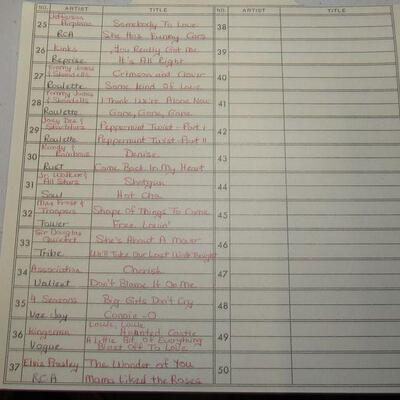 NO. ARTIST TITLE NO. ARTIST TITLE
25 Jefferson Airplane Somebody To Love 38
RCA She Has Funny Cars
26 Kinks You Really Got Me 39
Reprise It's All Right
27 Tommy James & Shondells Crimson and Clover 40
Roulette Some Kind Of Love
28 Tommy James & Shondells I Think We're Alone Now 41
Roulette Gone, Gone, Gone
29 Joey Dee & Starliters Peppermint Twist - Part I 42
Roulette Peppermint Twist - Part II
30 Randy & Rainbows Denise 43
Rust Come Back In My Heart
31 Jr. Walker & All Stars Shotgun 44
Soul Hot Cha
32 Max Frost & Troopers Shape of Things To Come 45
Tower Free Lovin'
33 Sir Douglas Quintet She's About A Mover 46
Tribe We'll Take Our Last Walk Tonight
34 Association Cherish 47
Valient Don't Blame It On Me
35 4 Seasons Big Girls Don't Cry 48
Vee Jay Connie-O
36 Kingsmen Louie, Louie Haunted Castle 49
Vogue A Little Bit of Everything Blast Off To Love
37 Elvis Presley The Wonder of You 50
RCA Mama Liked the Roses